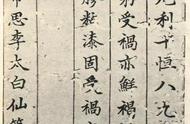 利干恒八九
受禍亦鮮禍
膠黏漆固受禍
思李太白仙